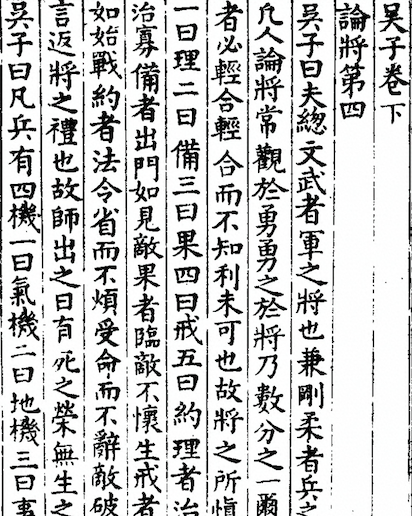 吳子卷下
論將第四
吳子曰夫緫文武者軍之將也兼剛柔者兵之
凢人論將常觀於勇勇之於將乃數分之一爾
者必輕合輕合而不知利未可也故將之所慎
一曰理二曰備三曰果四曰戒五曰約理者治
治寡備者出門如見敵果者臨敵不懷生戒者
如始戰約者法令省而不煩受命而不辭敵破
言返將之禮也故師出之日有死之榮無生之
吳子曰凡兵有四機一曰氣機二曰地機三曰事